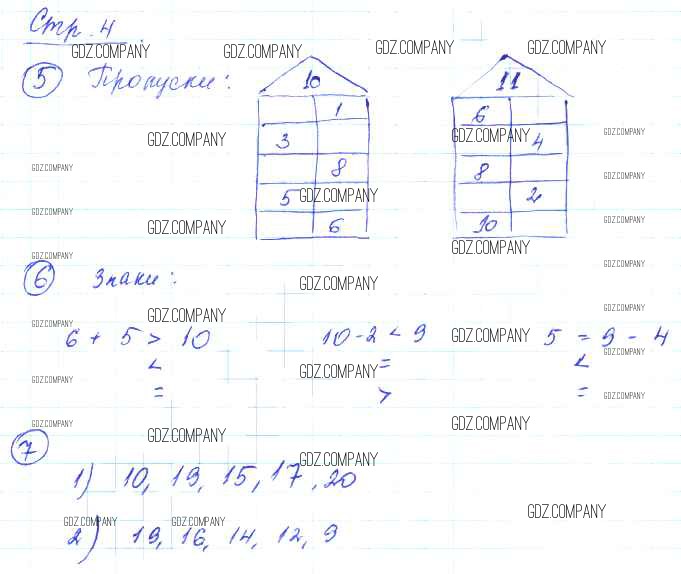 Стр. 4
GDZ.COMPANY GDZ.COMPANY GDZ.COMPANY GDZ.COMPANY
5 Пропуски: 10 11
1 6
3 GDZ.COMPANY GDZ.COMPANY 4 GDZ.COMPANY
GDZ.COMPANY 8 8 GDZ.COMPANY
5 GDZ.COMPANY 2
GDZ.COMPANY GDZ.COMPANY 6 10 GDZ.COMPANY
GDZ.COMPANY GDZ.COMPANY GDZ.COMPANY
6 Знаки: GDZ.COMPANY GDZ.COMPANY
GDZ.COMPANY GDZ.COMPANY GDZ.COMPANY
6 + 5 > 10 10 - 2 < 9 GDZ.COMPANY 5 = 9 - 4
< GDZ.COMPANY = < GDZ.COMPANY
GDZ.COMPANY = > = GDZ.COMPANY
GDZ.COMPANY GDZ.COMPANY GDZ.COMPANY
7 GDZ.COMPANY
1) 10, 19, 15, 17, 20
GDZ.COMPANY GDZ.COMPANY GDZ.COMPANY
2) 19, 16, 14, 12, 9